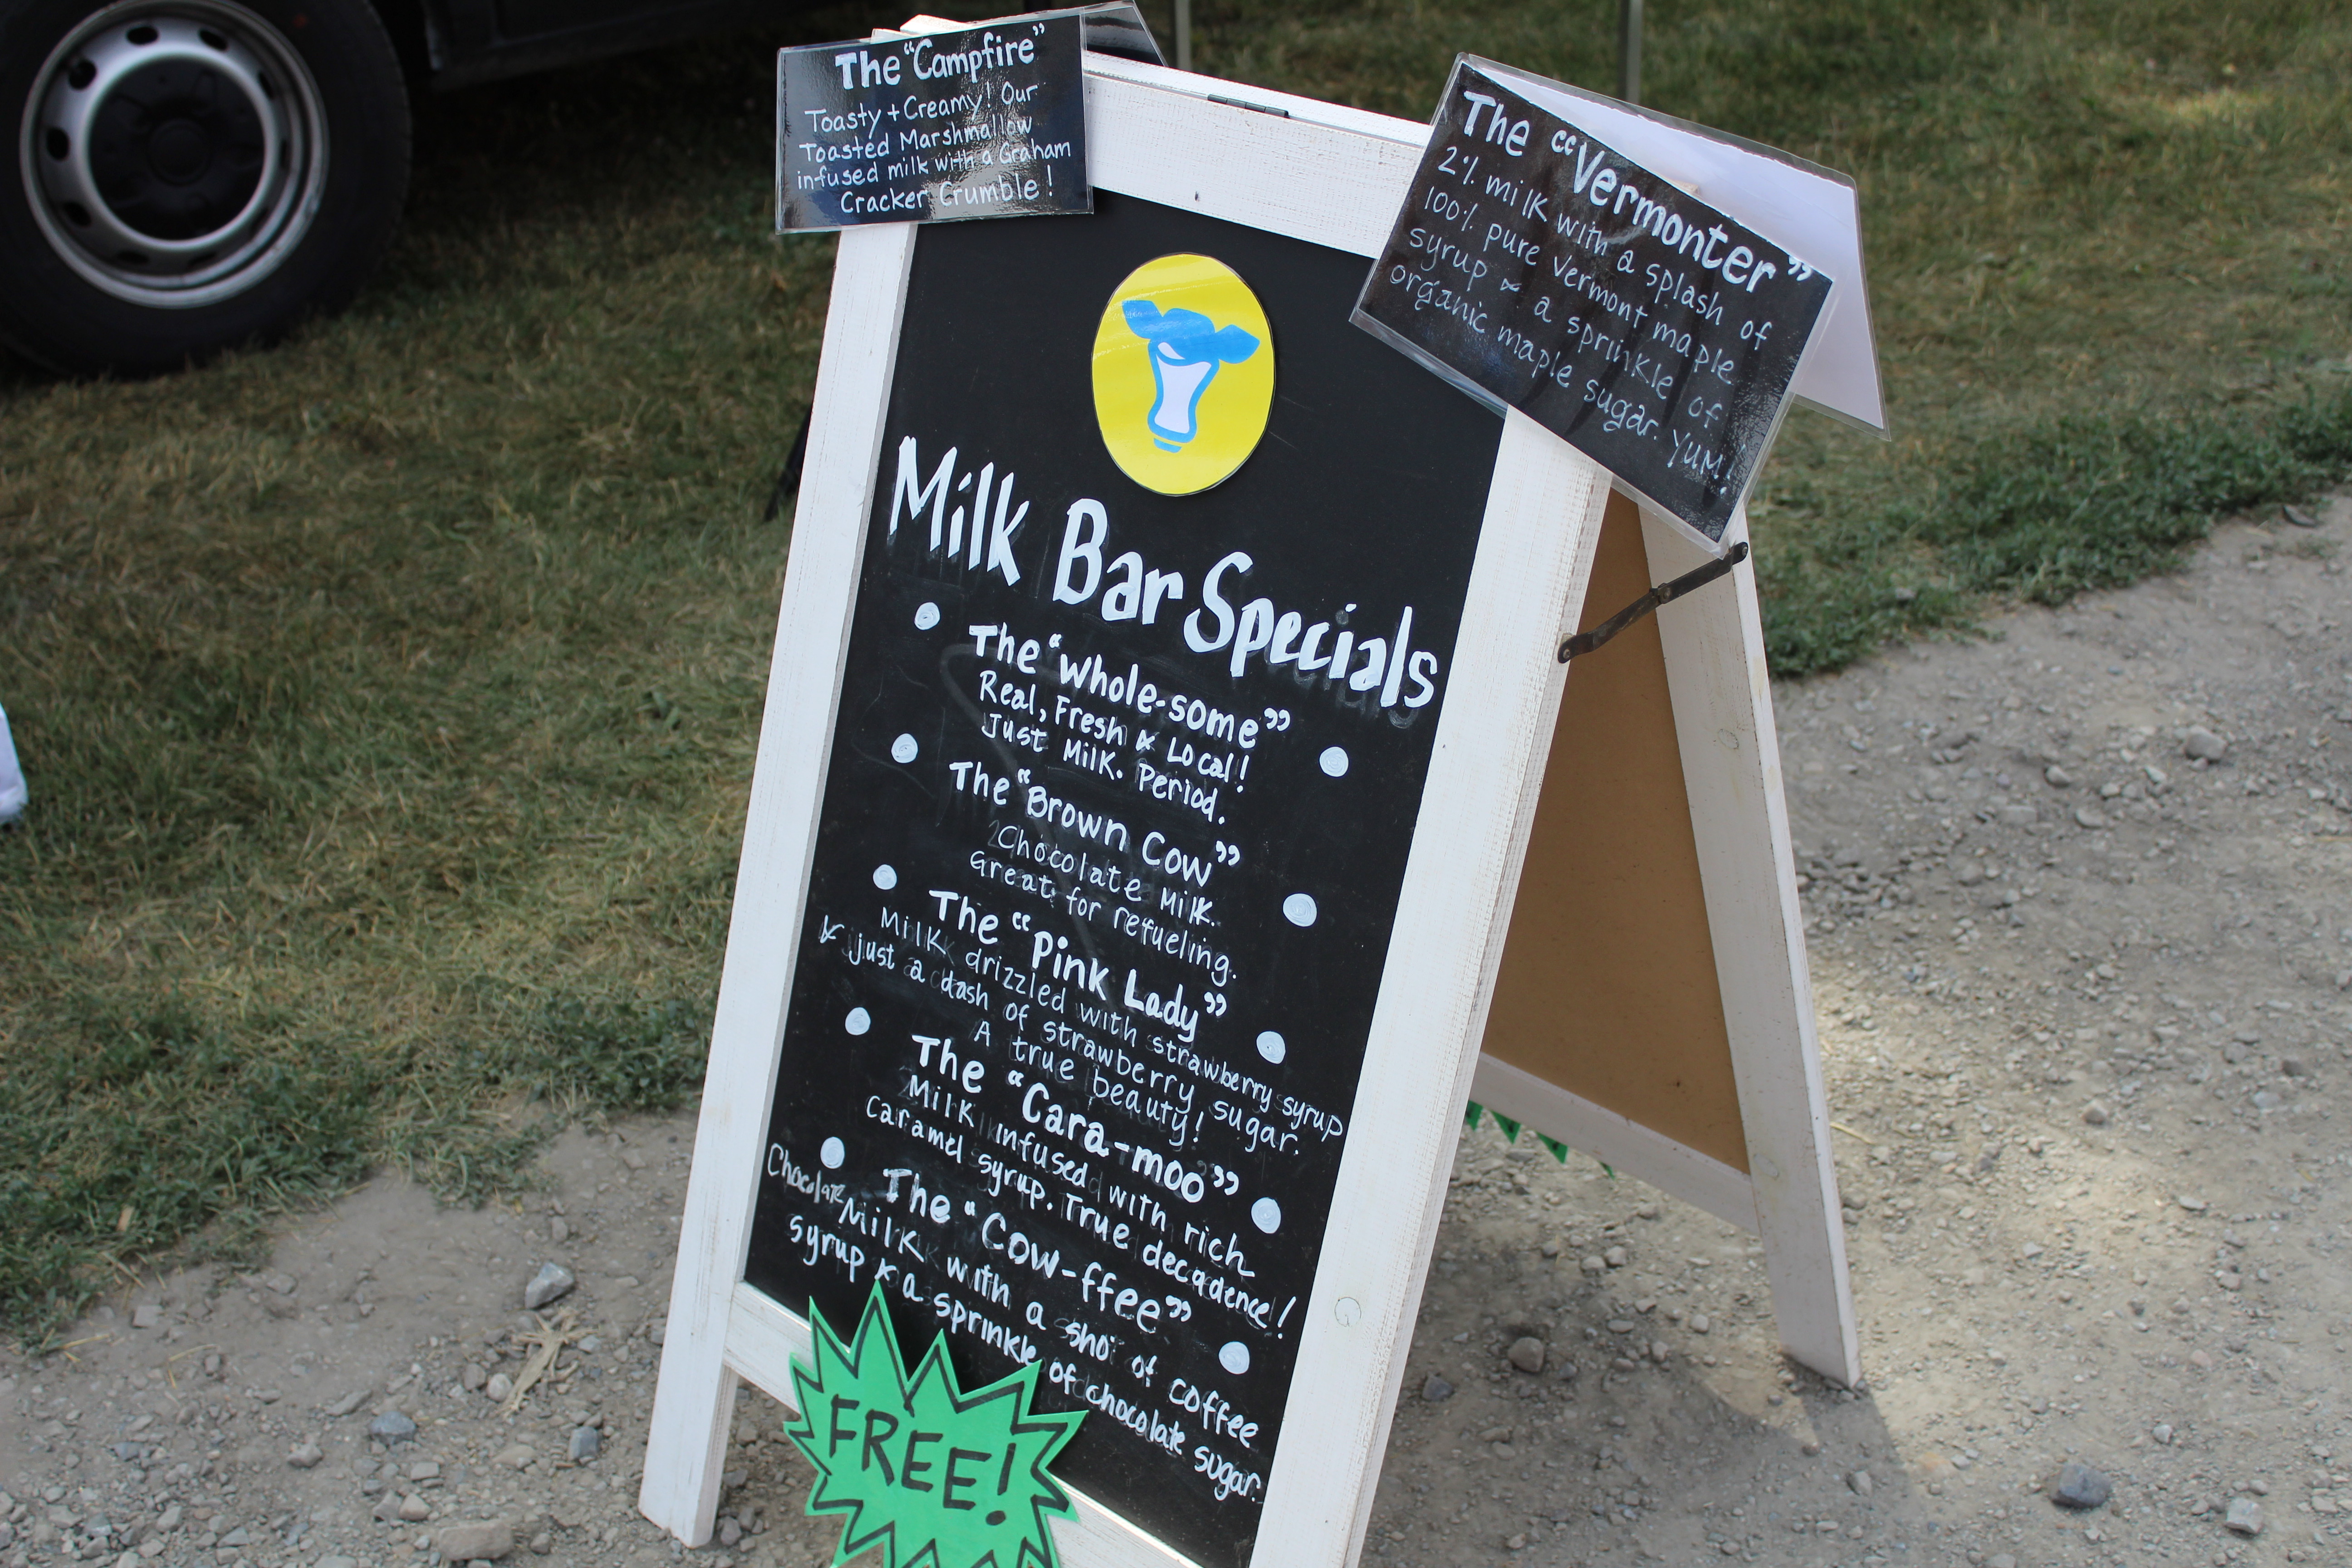 The "Campfire"
Toasty + Creamy! Our
Toasted Marshmallow
infused milk with a Graham
Cracker Crumble!
The "Vermonter"
2% milk with a splash of
100% pure Vermont maple
syrup & a sprinkle of
organic maple sugar. YUM!
Milk Bar Specials
The "Whole-some"
Real, Fresh & Local!
Just Milk. Period.
The "Brown Cow"
Chocolate Milk.
Great for refueling.
The "Pink Lady"
Milk drizzled with strawberry syrup
& just a dash of strawberry sugar.
A true beauty!
The "Cara-moo"
Milk infused with rich
caramel syrup. True decadence!
The "Cow-ffee"
Chocolate Milk with a shot of coffee
syrup & a sprinkle of chocolate sugar.
FREE!